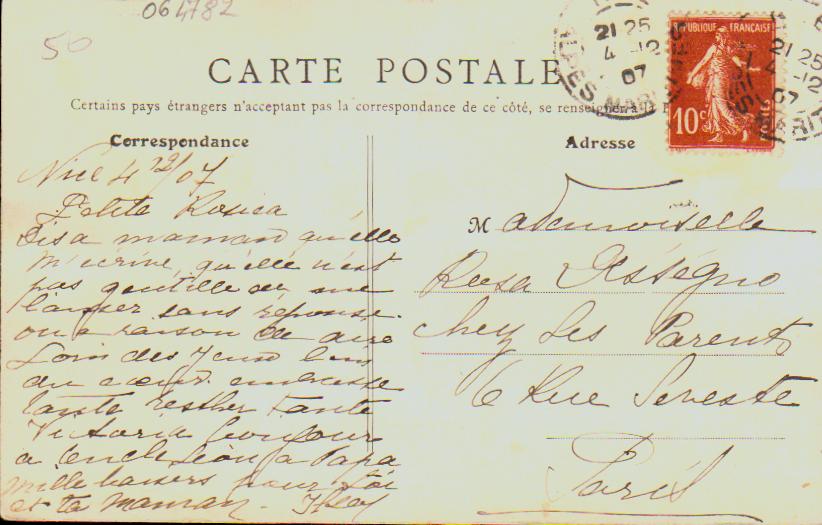 064782
50
21 25
4 -12
07
RÉPUBLIQUE FRANÇAISE
10c
21 25
4 -12
07
CARTE POSTALE
Certains pays étrangers n'acceptent pas la correspondance de ce côté, se renseigner à la
Correspondance
Adresse
Nice 4 12/07
Petite Rosica
Dis a maman qu'elle
m'écrive, qu'elle n'est
pas gentille de me
laisser sans réponse.
on a raison de dire
Loin des yeux loin
du coeur. embrasse
tante Esther tante
Victoria bonjour
a l'oncle Léon a Papa
mille baisers pour toi
et ta maman -
Mademoiselle
Rosa
Chez Ses Parents
6 Rue Seveste
Paris